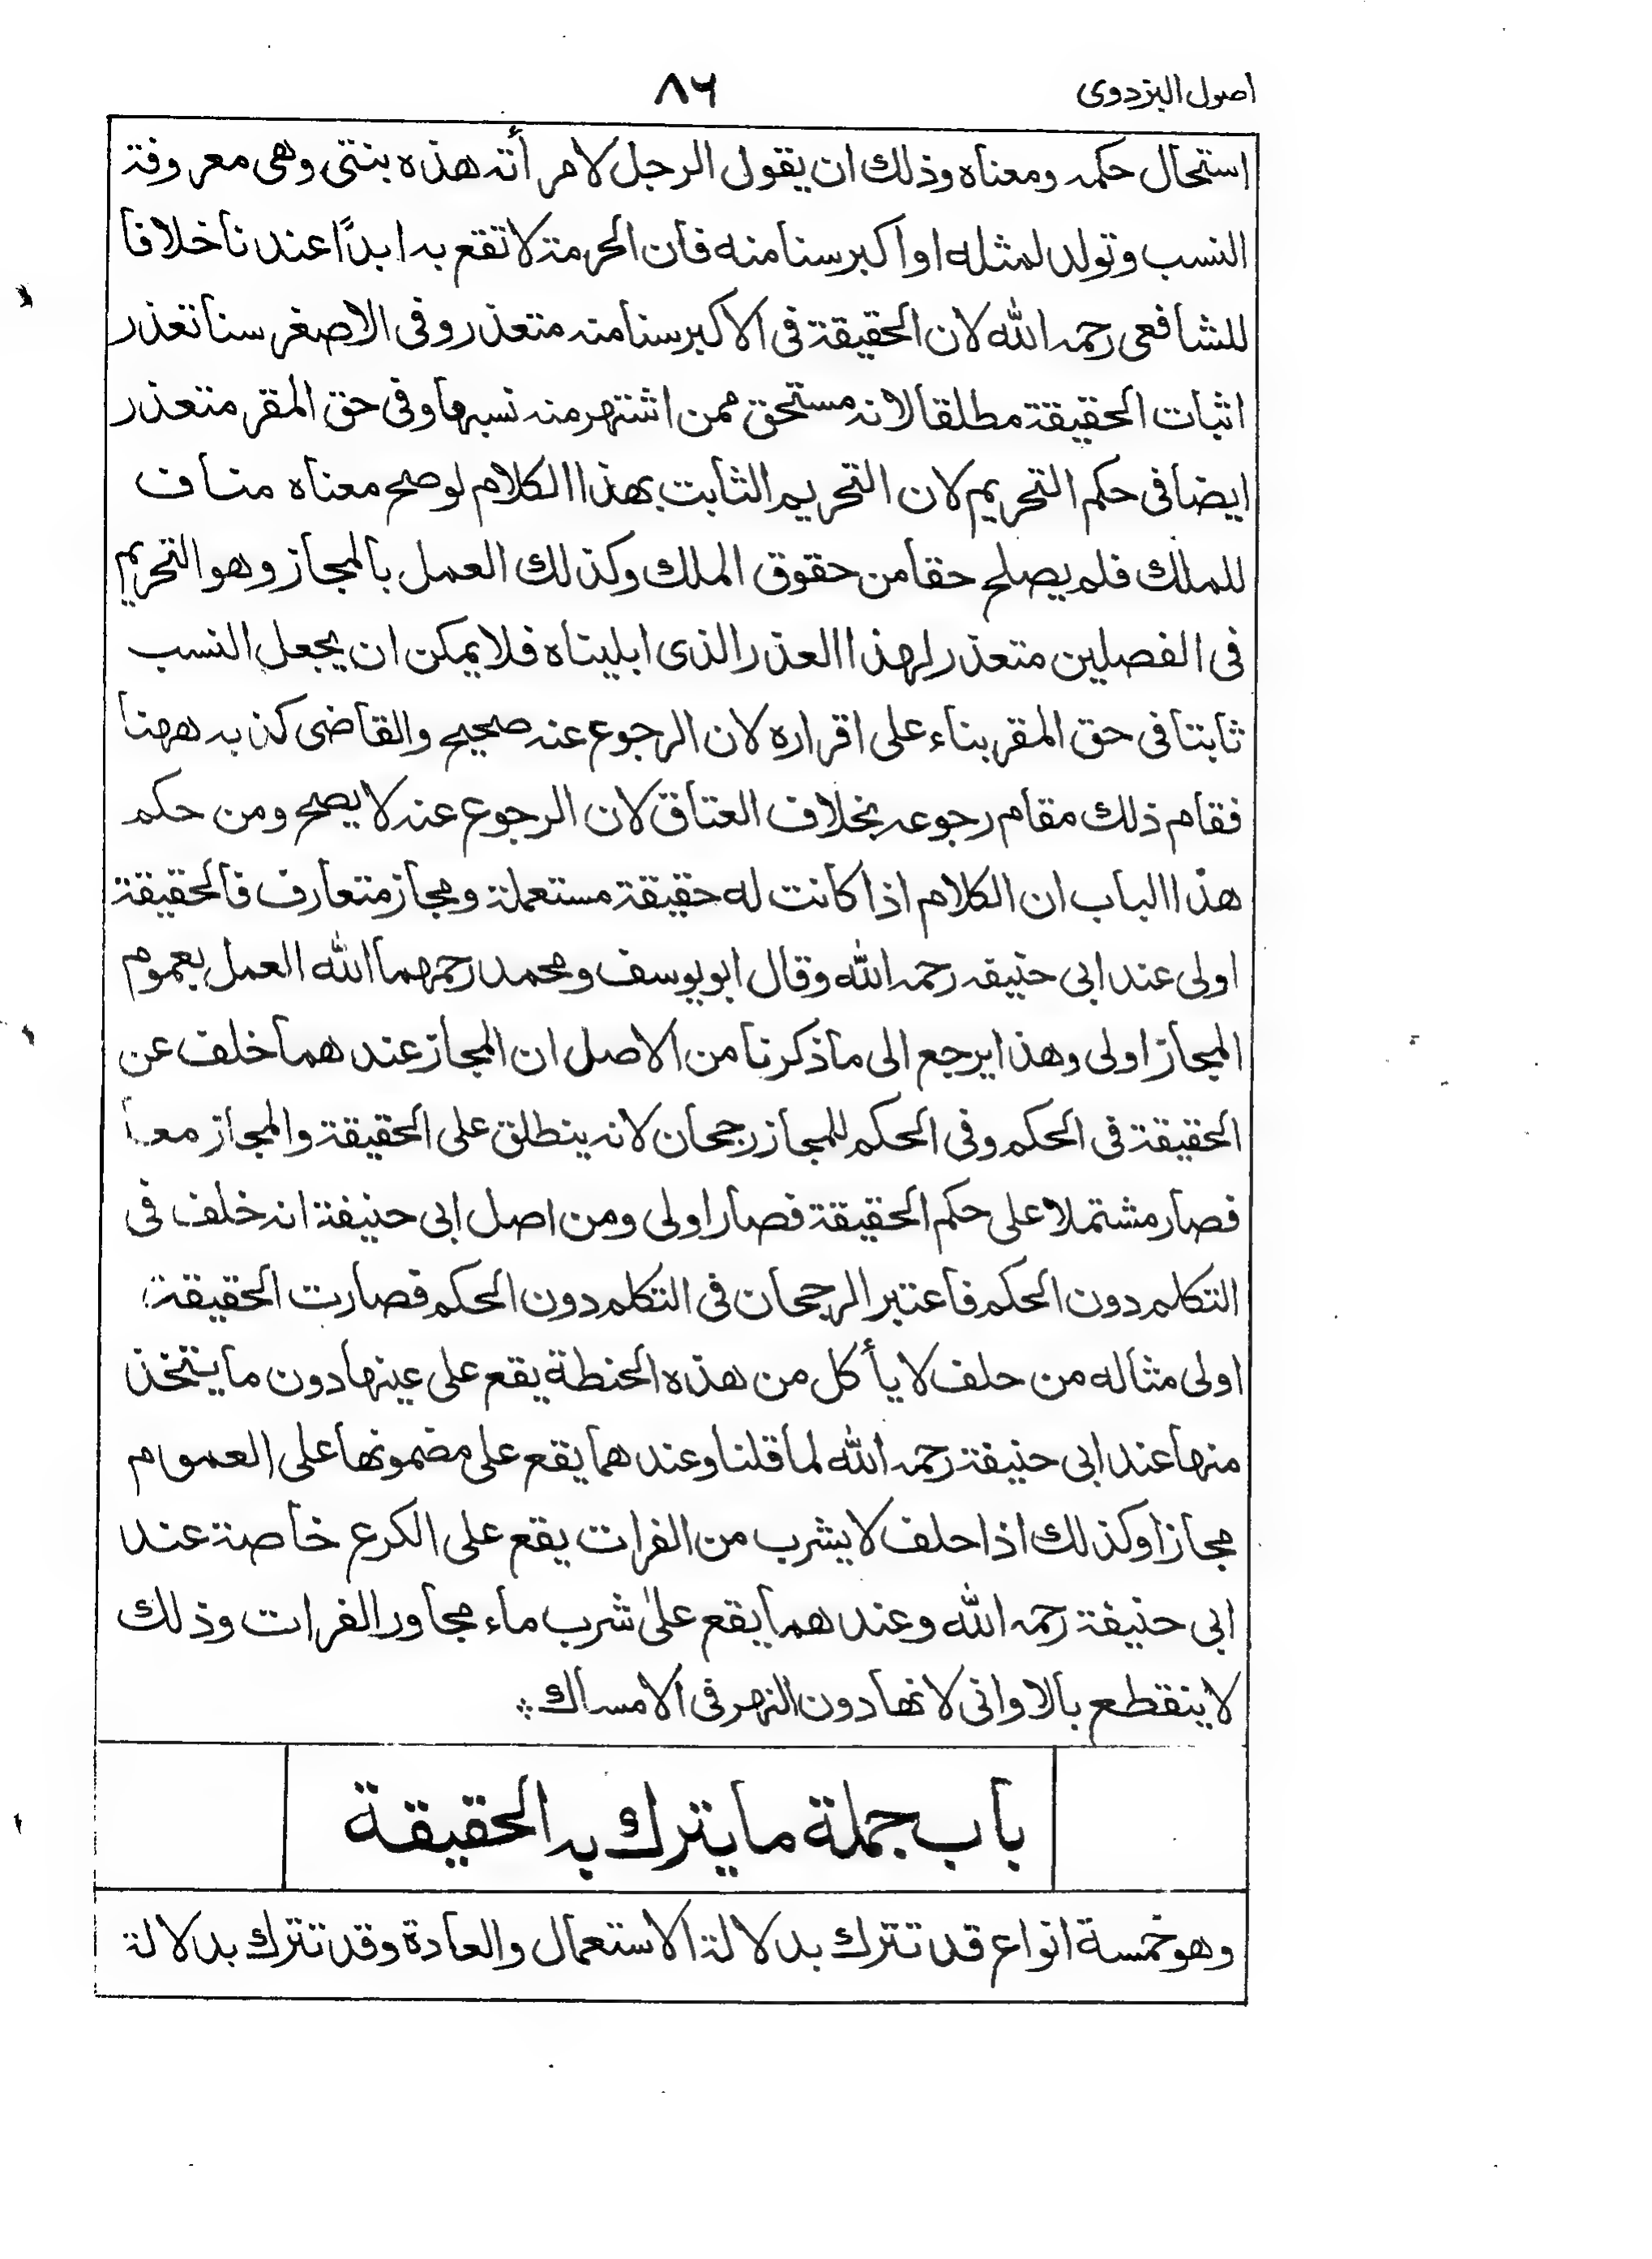 اصول البزدوى
٨٦
استحال حكمه ومعناه وذلك ان يقول الرجل لامرأته هذه بنتى وهى معروفة
النسب وتولد لمثله او اكبر سنا منه فان الحرمة لا تقع به ابدًا عندنا خلافا
للشافعى رحمه الله لان الحقيقة فى الاكبر سنا منه متعذر وفى الاصغر سنا تعذر
اثبات الحقيقة مطلقا لانه مستحق ممن اشتهر منه نسبها وفى حق المقر متعذر
ايضا فى حكم التحريم لان التحريم الثابت بهذا الكلام لو صح معناه مناف
للملك فلم يصلح حقا من حقوق الملك وكذلك العمل بالمجاز وهو التحريم
فى الفصلين متعذر لهذا العذر الذى ابليناه فلا يمكن ان يجعل النسب
ثابتا فى حق المقر بناء على اقراره لان الرجوع عنه صحيح والقاضى كذبه ههنا
فقام ذلك مقام رجوعه بخلاف العتاق لان الرجوع عنه لا يصح ومن حكم
هذا الباب ان الكلام اذا كانت له حقيقة مستعملة ومجاز متعارف فالحقيقة
اولى عند ابى حنيفه رحمه الله وقال ابو يوسف ومحمد رحمهما الله العمل بعموم
المجاز اولى وهذا يرجع الى ما ذكرنا من الاصل ان المجاز عندهما خلف عن
الحقيقة فى الحكم وفى الحكم للمجاز رجحان لانه ينطلق على الحقيقة والمجاز معا
فصار مشتملا على حكم الحقيقة فصار اولى ومن اصل ابى حنيفة انه خلف فى
التكلم دون الحكم فاعتبر الرجحان فى التكلم دون الحكم فصارت الحقيقة
اولى مثاله من حلف لا يأكل من هذه الحنطة يقع على عينها دون ما يتخذ
منها عند ابى حنيفة رحمه الله لما قلنا وعندهما يقع على مضمونها على العموم
مجازا وكذلك اذا حلف لا يشرب من الفرات يقع على الكرع خاصة عند
ابى حنيفة رحمه الله وعندهما يقع على شرب ماء مجاور الفرات وذلك
لا ينقطع بالاوانى لانها دون النهر فى الامساك
باب جملة ما يترك به الحقيقة
وهو خمسة انواع قد تترك بدلالة الاستعمال والعادة وقد تترك بدلالة